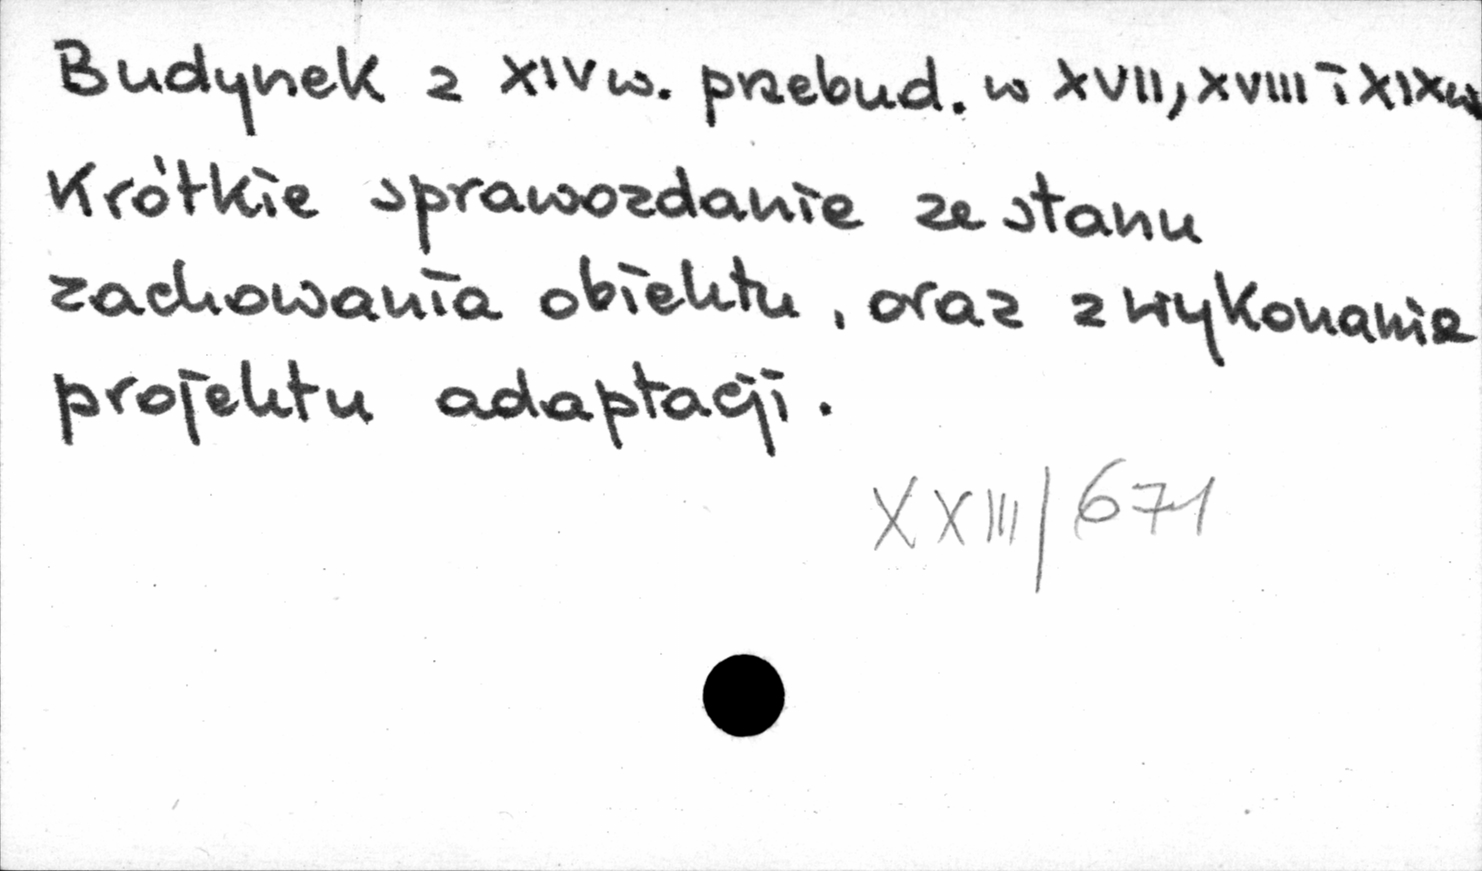 Budynek z XIV w. przebud. w XVII, XVIII i XIX w
Krótkie sprawozdanie ze stanu
zachowania obiektu, oraz z wykonanie
projektu adaptacji.
XXIII/671